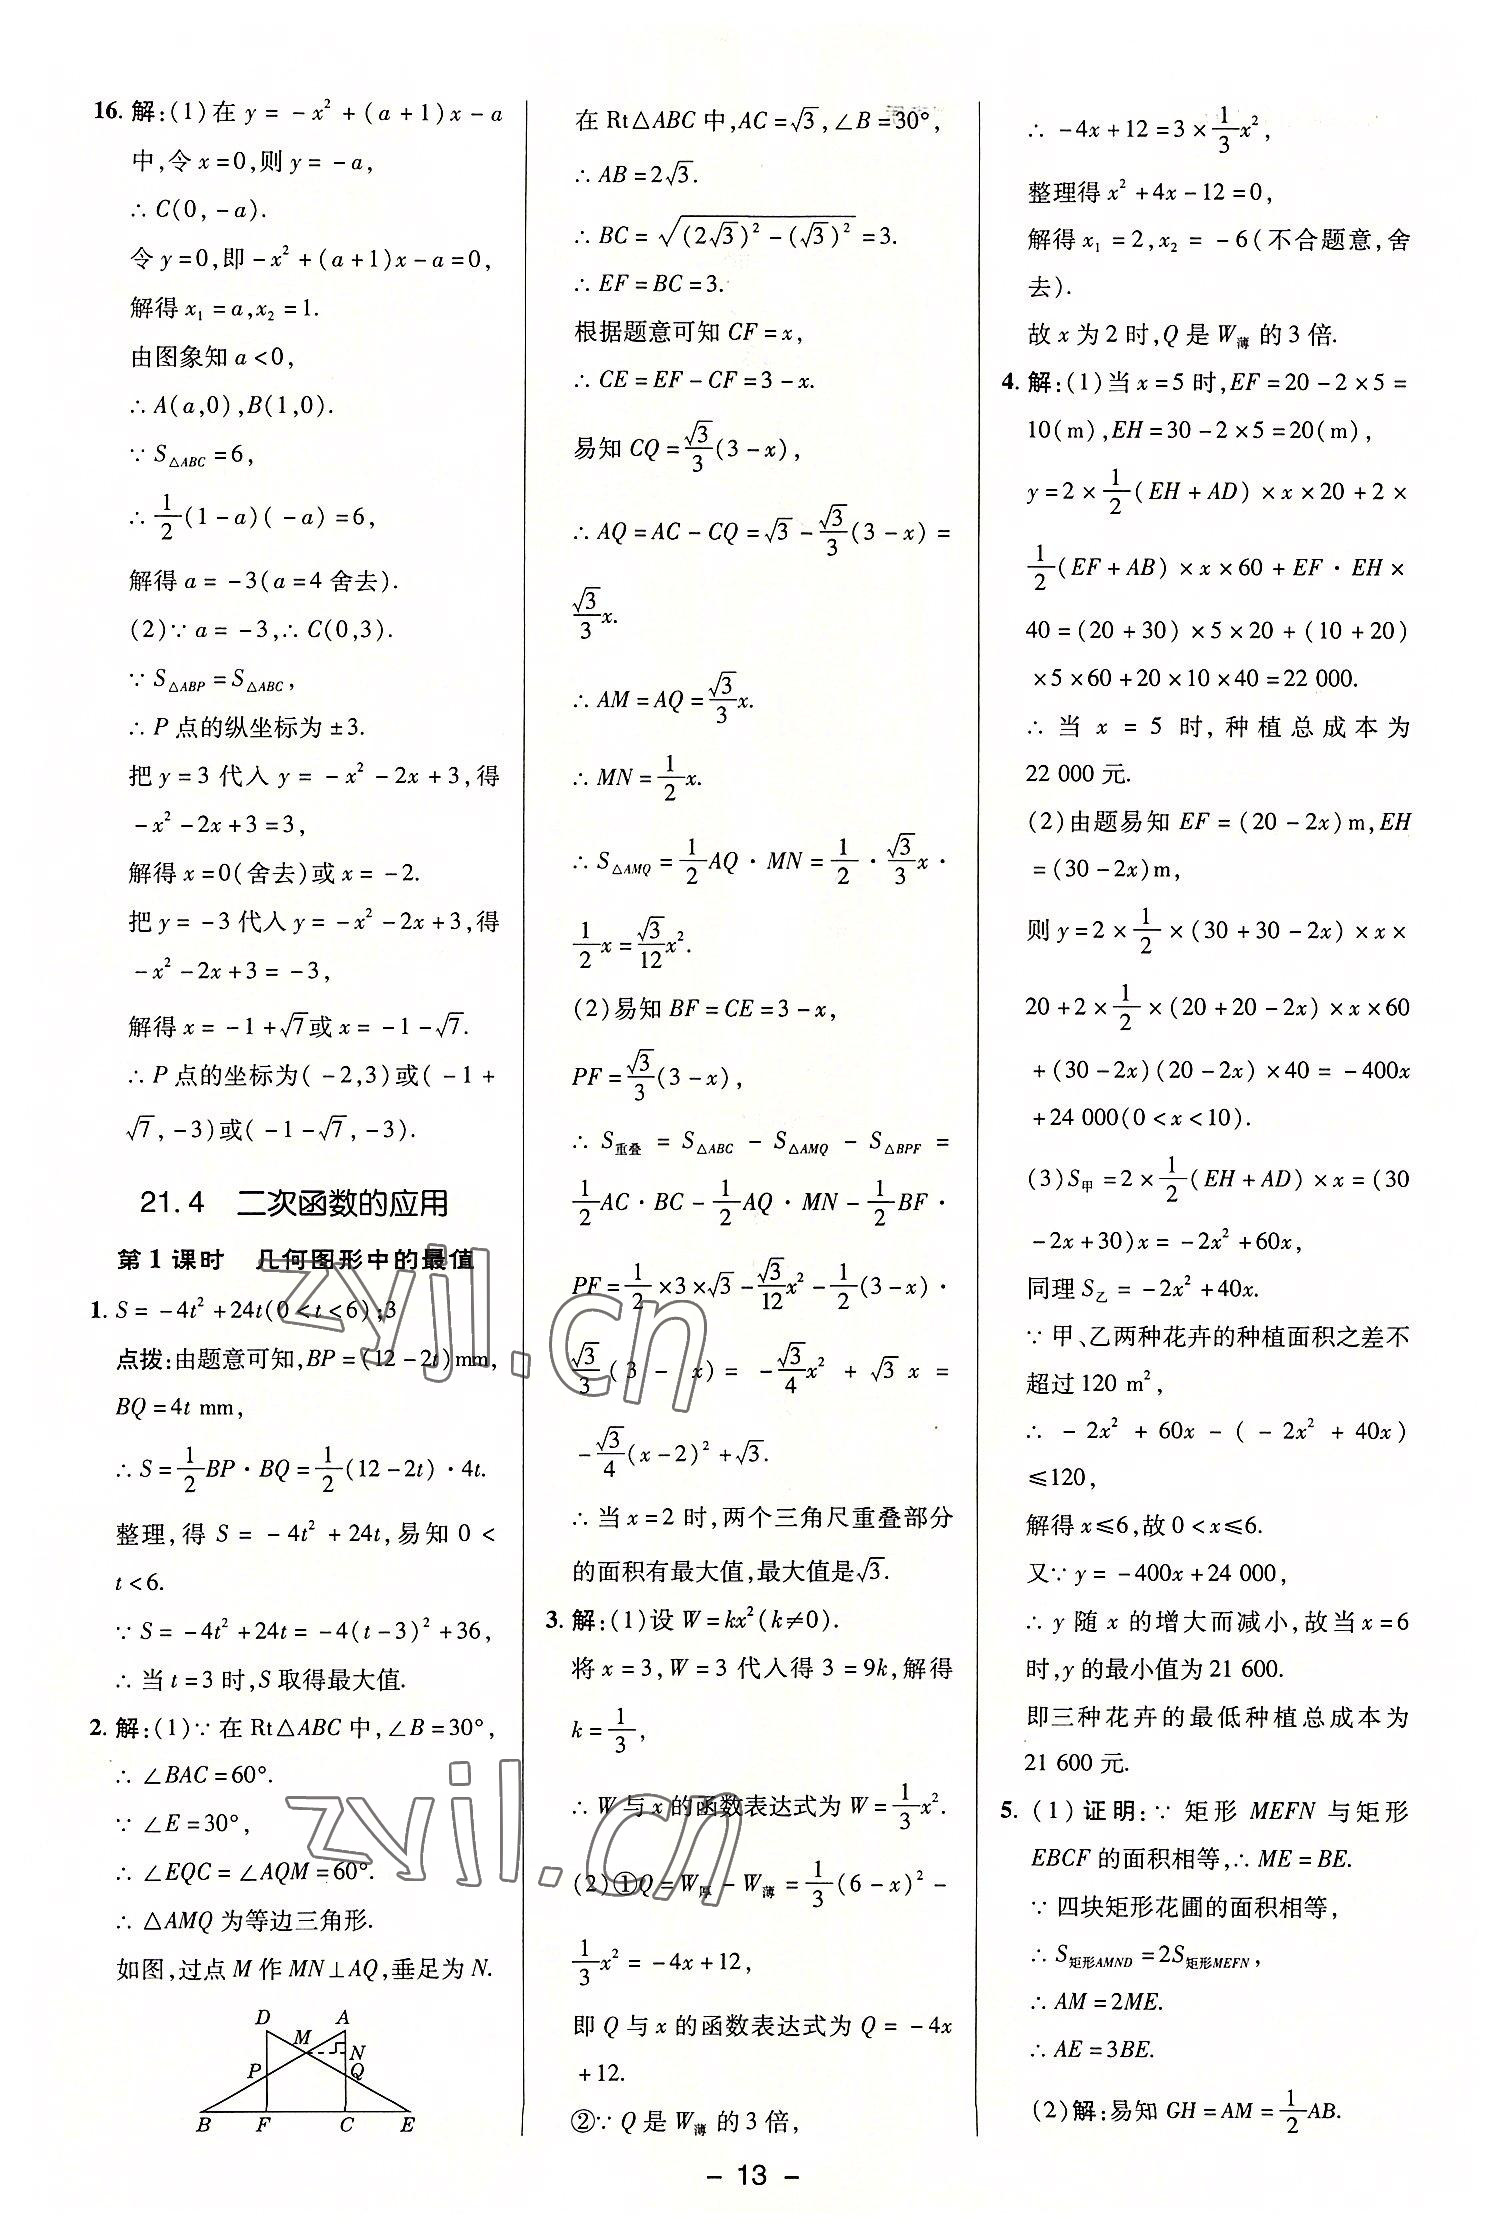 16. 解:(1)在 y = -x² + (a+1)x - a
中,令 x=0,则 y = -a,
∴ C(0, -a).
令 y=0,即 -x² + (a+1)x - a = 0,
解得 x₁ = a, x₂ = 1.
由图象知 a < 0,
∴ A(a,0), B(1,0).
∵ S△ABC = 6,
∴ 1/2(1-a)(-a) = 6,
解得 a = -3(a=4 舍去).
(2)∵ a = -3, ∴ C(0,3).
∵ S△ABP = S△ABC,
∴ P 点的纵坐标为 ±3.
把 y=3 代入 y = -x² - 2x + 3,得
-x² - 2x + 3 = 3,
解得 x=0(舍去)或 x = -2.
把 y = -3 代入 y = -x² - 2x + 3,得
-x² - 2x + 3 = -3,
解得 x = -1 + √7 或 x = -1 - √7.
∴ P 点的坐标为(-2,3)或(-1 +
√7, -3)或(-1 - √7, -3).
21.4 二次函数的应用
第1课时 几何图形中的最值
1. S = -4t² + 24t(0 < t < 6);3
点拨:由题意可知,BP = (12 - 2t)mm,
BQ = 4t mm,
∴ S = 1/2 BP · BQ = 1/2(12 - 2t) · 4t.
整理,得 S = -4t² + 24t,易知 0 <
t < 6.
∵ S = -4t² + 24t = -4(t-3)² + 36,
∴ 当 t=3 时,S 取得最大值.
2. 解:(1)∵ 在 Rt△ABC 中,∠B = 30°,
∴ ∠BAC = 60°.
∵ ∠E = 30°,
∴ ∠EQC = ∠AQM = 60°.
∴ △AMQ 为等边三角形.
如图,过点 M 作 MN⊥AQ,垂足为 N.
D A
M N
P Q
B F C E
在 Rt△ABC 中,AC = √3,∠B = 30°,
∴ AB = 2√3.
∴ BC = √((2√3)² - (√3)²) = 3.
∴ EF = BC = 3.
根据题意可知 CF = x,
∴ CE = EF - CF = 3 - x.
易知 CQ = √3/3(3 - x),
∴ AQ = AC - CQ = √3 - √3/3(3 - x) =
√3/3 x.
∴ AM = AQ = √3/3 x.
∴ MN = 1/2 x.
∴ S△AMQ = 1/2 AQ · MN = 1/2 · √3/3 x ·
1/2 x = √3/12 x².
(2)易知 BF = CE = 3 - x,
PF = √3/3(3 - x),
∴ S重叠 = S△ABC - S△AMQ - S△BPF =
1/2 AC · BC - 1/2 AQ · MN - 1/2 BF ·
PF = 1/2 × 3 × √3 - √3/12 x² - 1/2(3 - x) ·
√3/3 (3 - x) = -√3/4 x² + √3 x =
-√3/4(x - 2)² + √3.
∴ 当 x=2 时,两个三角尺重叠部分
的面积有最大值,最大值是√3.
3. 解:(1)设 W = kx²(k≠0).
将 x=3, W=3 代入得 3=9k,解得
k = 1/3,
∴ W 与 x 的函数表达式为 W = 1/3 x².
(2)①Q = W厚 - W薄 = 1/3(6 - x)² -
1/3 x² = -4x + 12,
即 Q 与 x 的函数表达式为 Q = -4x
+12.
②∵ Q 是 W薄 的 3 倍,
∴ -4x + 12 = 3 × 1/3 x²,
整理得 x² + 4x - 12 = 0,
解得 x₁ = 2, x₂ = -6(不合题意,舍
去).
故 x 为 2 时,Q 是 W薄 的 3 倍.
4. 解:(1)当 x=5 时,EF = 20 - 2×5 =
10(m), EH = 30 - 2×5 = 20(m),
y = 2 × 1/2(EH + AD) × x × 20 + 2 ×
1/2(EF + AB) × x × 60 + EF · EH ×
40 = (20 + 30) × 5 × 20 + (10 + 20)
×5×60 + 20×10×40 = 22 000.
∴ 当 x = 5 时,种植总成本为
22 000 元.
(2)由题易知 EF = (20 - 2x)m, EH
= (30 - 2x)m,
则 y = 2 × 1/2 × (30 + 30 - 2x) × x ×
20 + 2 × 1/2 × (20 + 20 - 2x) × x × 60
+ (30 - 2x)(20 - 2x) × 40 = -400x
+24 000(0 < x < 10).
(3)S甲 = 2 × 1/2(EH + AD) × x = (30
-2x + 30)x = -2x² + 60x,
同理 S乙 = -2x² + 40x.
∵ 甲、乙两种花卉的种植面积之差不
超过 120 m²,
∴ -2x² + 60x - (-2x² + 40x)
≤120,
解得 x≤6,故 0 < x≤6.
又∵ y = -400x + 24 000,
∴ y 随 x 的增大而减小,故当 x=6
时,y 的最小值为 21 600.
即三种花卉的最低种植总成本为
21 600 元.
5. (1)证明:∵ 矩形 MEFN 与矩形
EBCF 的面积相等,∴ ME = BE.
∵ 四块矩形花圃的面积相等,
∴ S矩形AMND = 2S矩形MEFN,
∴ AM = 2ME.
∴ AE = 3BE.
(2)解:易知 GH = AM = 1/2 AB.
- 13 -
zyjl.cn
zyjl.cn